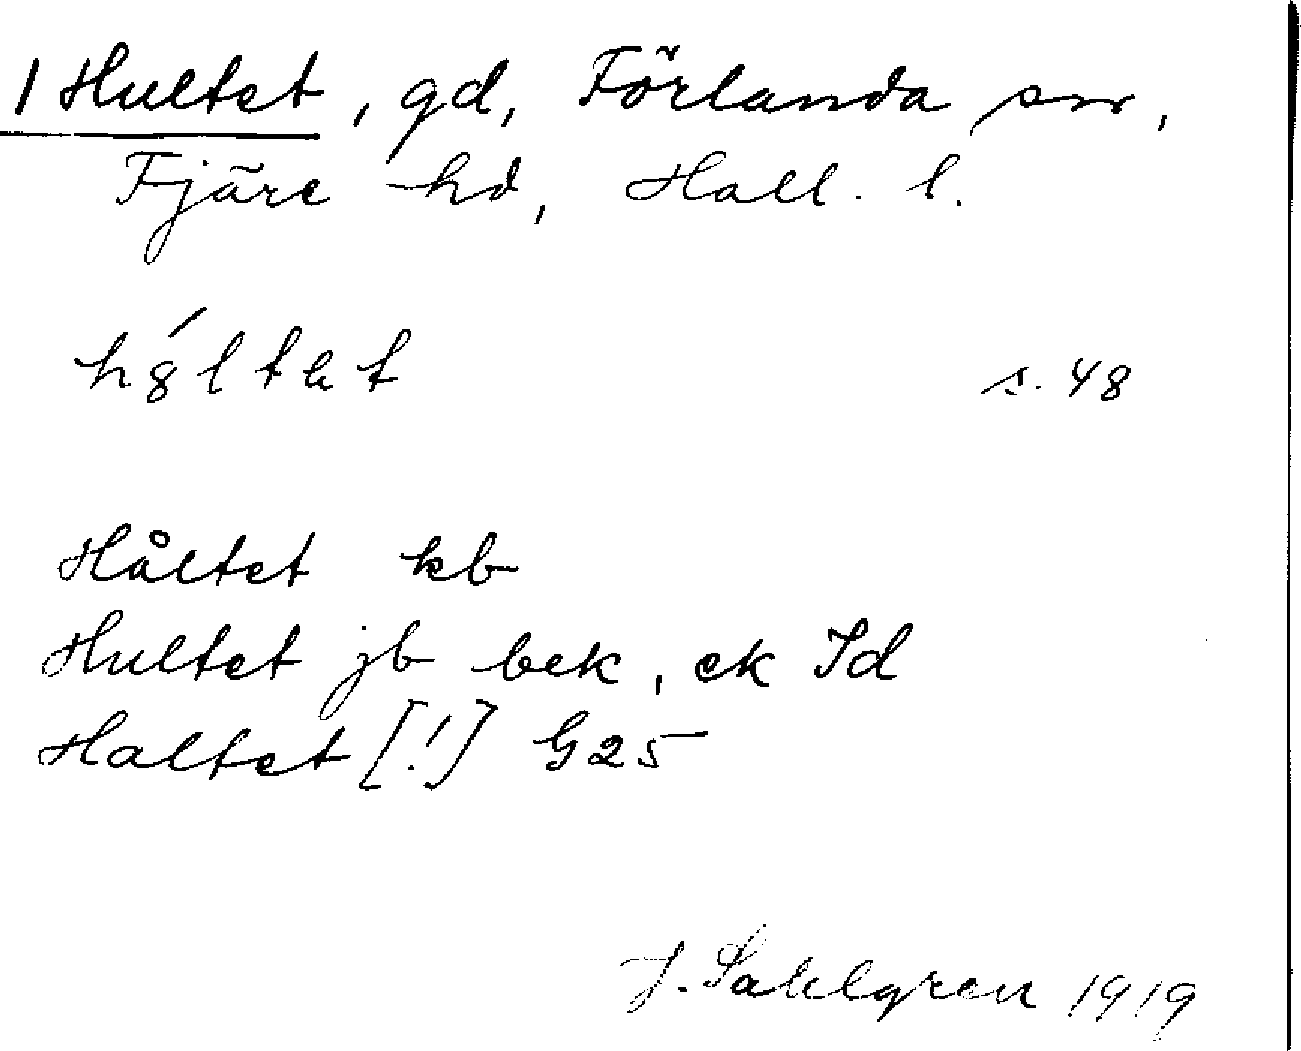 1 Hultet, gd, Förlanda sn,
Fjäre hd, Hall. l.
s. 48
Håltet kb
Hultet jb bek, ek Id
Haltet [!] G25
J. Sahlgren 1919